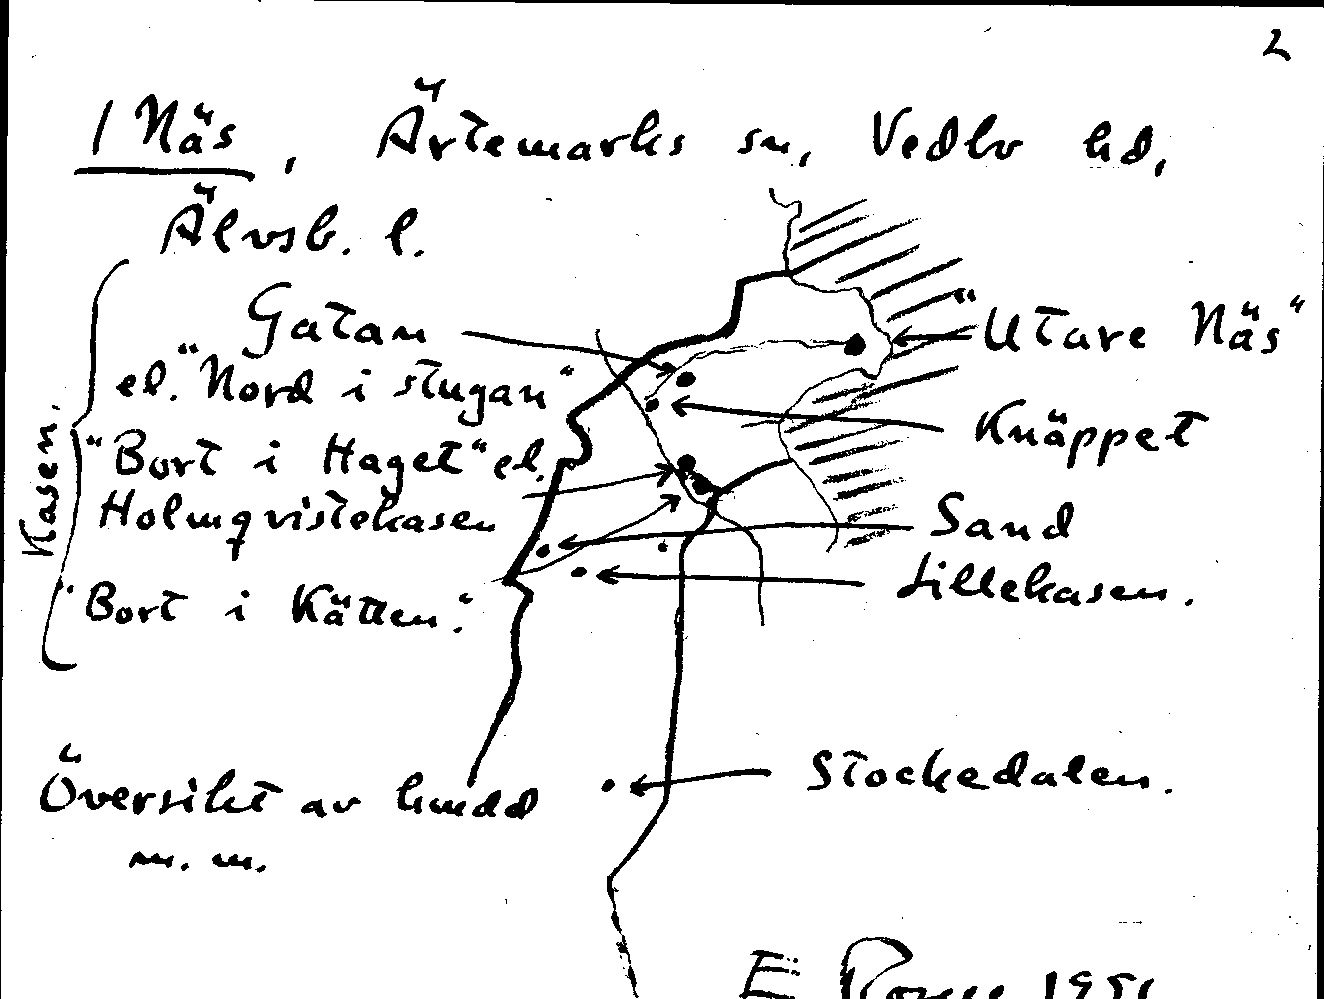 2
1 Näs, Ärtemarks sn, Vedbo hd,
Älvsb. l.
Gatan
el. "Nord i stugan"
"Bort i Haget" el.
Holmqvistekasen
"Bort i Kätten."
Kasen.
"Utare Näs"
Knäppet
Sand
Lillekasen.
Stockedalen.
Översikt av hmdd
m. m.
E